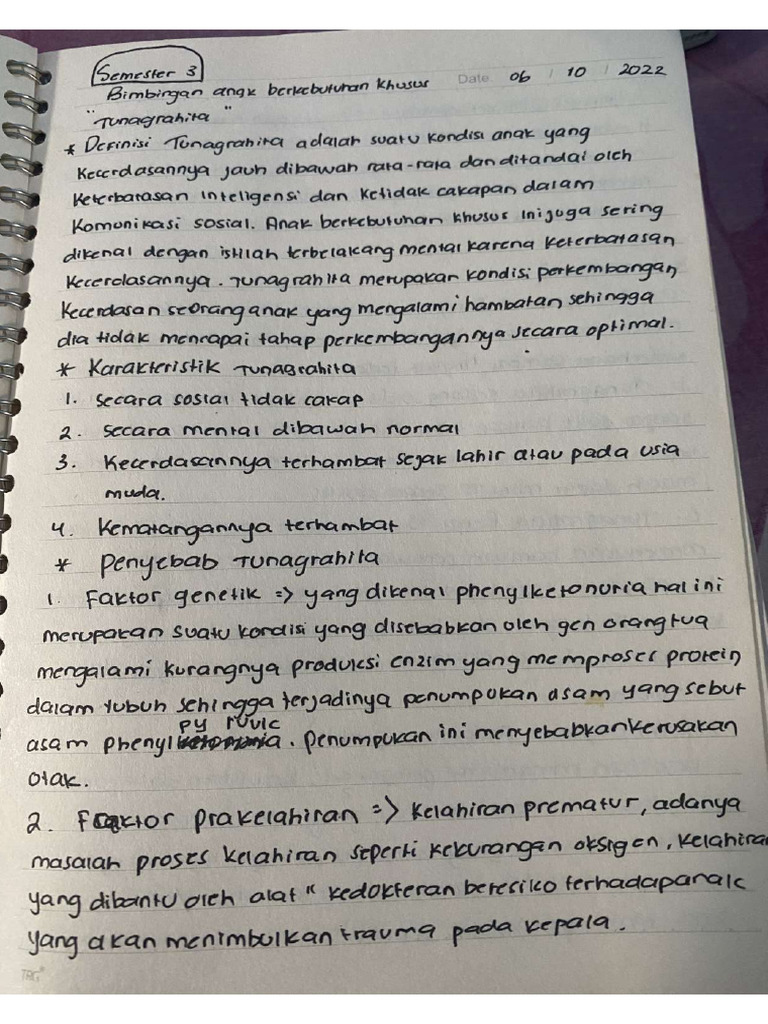 Semester 3
Bimbingan anak berkebutuhan khusus Date 06 / 10 / 2022
"Tunagrahita"
* Definisi Tunagrahita adalah suatu kondisi anak yang
kecerdasannya jauh dibawah rata-rata dan ditandai oleh
keterbatasan inteligensi dan ketidak cakapan dalam
komunikasi sosial. Anak berkebutuhan khusus ini juga sering
dikenal dengan istilah terbelakang mental karena keterbatasan
kecerdasannya. Tunagrahita merupakan kondisi perkembangan
kecerdasan seorang anak yang mengalami hambatan sehingga
dia tidak mencapai tahap perkembangannya secara optimal.
* Karakteristik Tunagrahita
1. secara sosial tidak cakap
2. secara mental dibawah normal
3. Kecerdasannya terhambat sejak lahir atau pada usia
muda.
4. Kematangannya terhambat
* Penyebab Tunagrahita
1. Faktor genetik => yang dikenal phenylketonuria hal ini
merupakan suatu kondisi yang disebabkan oleh gen orang tua
mengalami kurangnya produksi enzim yang memproses protein
dalam tubuh sehingga terjadinya penumpukan asam yang sebut
asam phenylpyruvic. Penumpukan ini menyebabkan kerusakan
otak.
2. Faktor prakelahiran => kelahiran prematur, adanya
masalah proses kelahiran seperti kekurangan oksigen, kelahiran
yang dibantu oleh alat" kedokteran beresiko terhadap anak
yang akan menimbulkan trauma pada kepala.